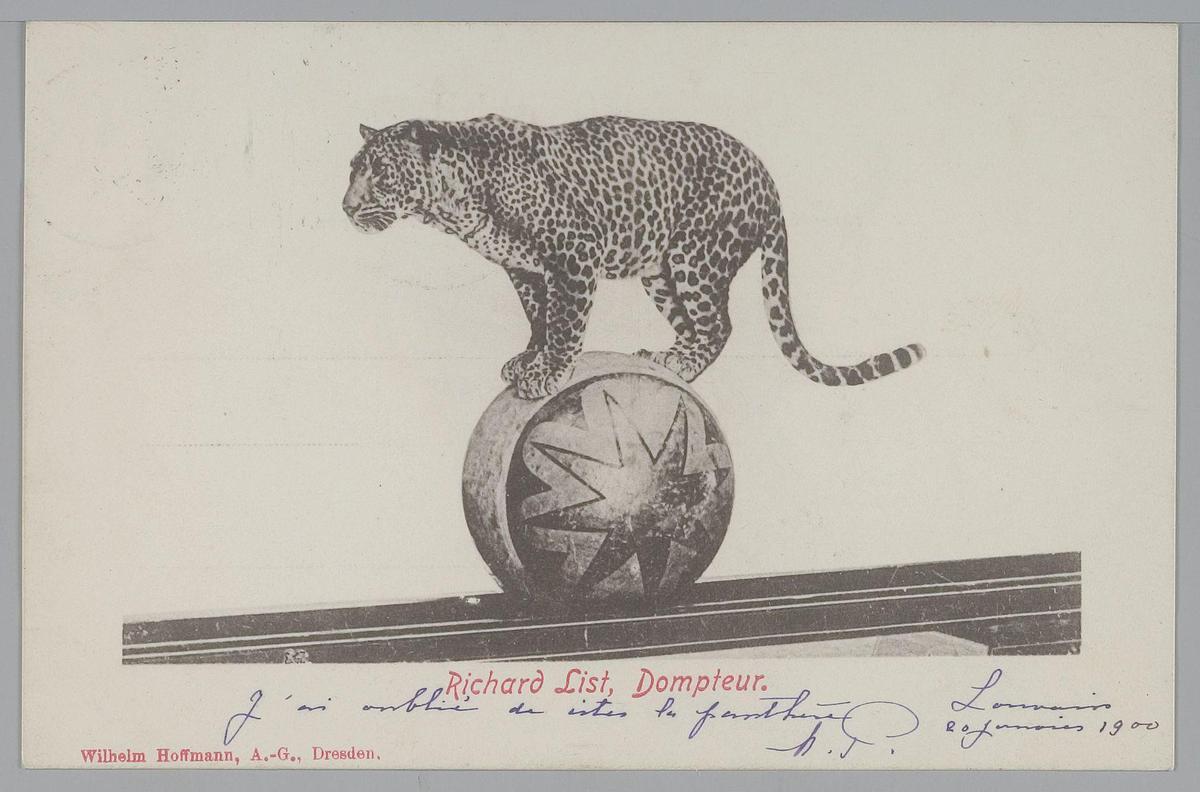 Richard List, Dompteur.
J'ai oublié de la panthère
Louvain
20 janvier 1900
Wilhelm Hoffmann, A.-G., Dresden.